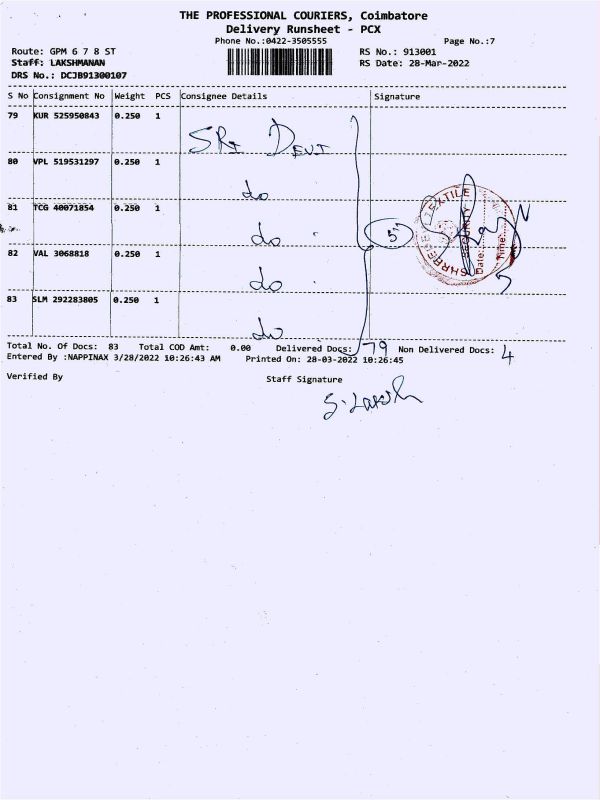 THE PROFESSIONAL COURIERS, Coimbatore
Delivery Runsheet - PCX
Phone No.:0422-3505555 Page No.:7
Route: GPM 6 7 8 ST RS No.: 913001
Staff: LAKSHMANAN RS Date: 28-Mar-2022
DRS No.: DCJB91300107
S No Consignment No Weight PCS Consignee Details Signature
79 KUR 525950843 0.250 1 SRI DEVI
80 VPL 519531297 0.250 1 do
81 TCG 40071854 0.250 1 do
82 VAL 3068818 0.250 1 do
83 SLM 292283805 0.250 1 do
5
TEXTILE
SECURITY
Date:
Time:
Total No. Of Docs: 83 Total COD Amt: 0.00 Delivered Docs: 79 Non Delivered Docs: 4
Entered By :NAPPINAX 3/28/2022 10:26:43 AM Printed On: 28-03-2022 10:26:45
Verified By Staff Signature